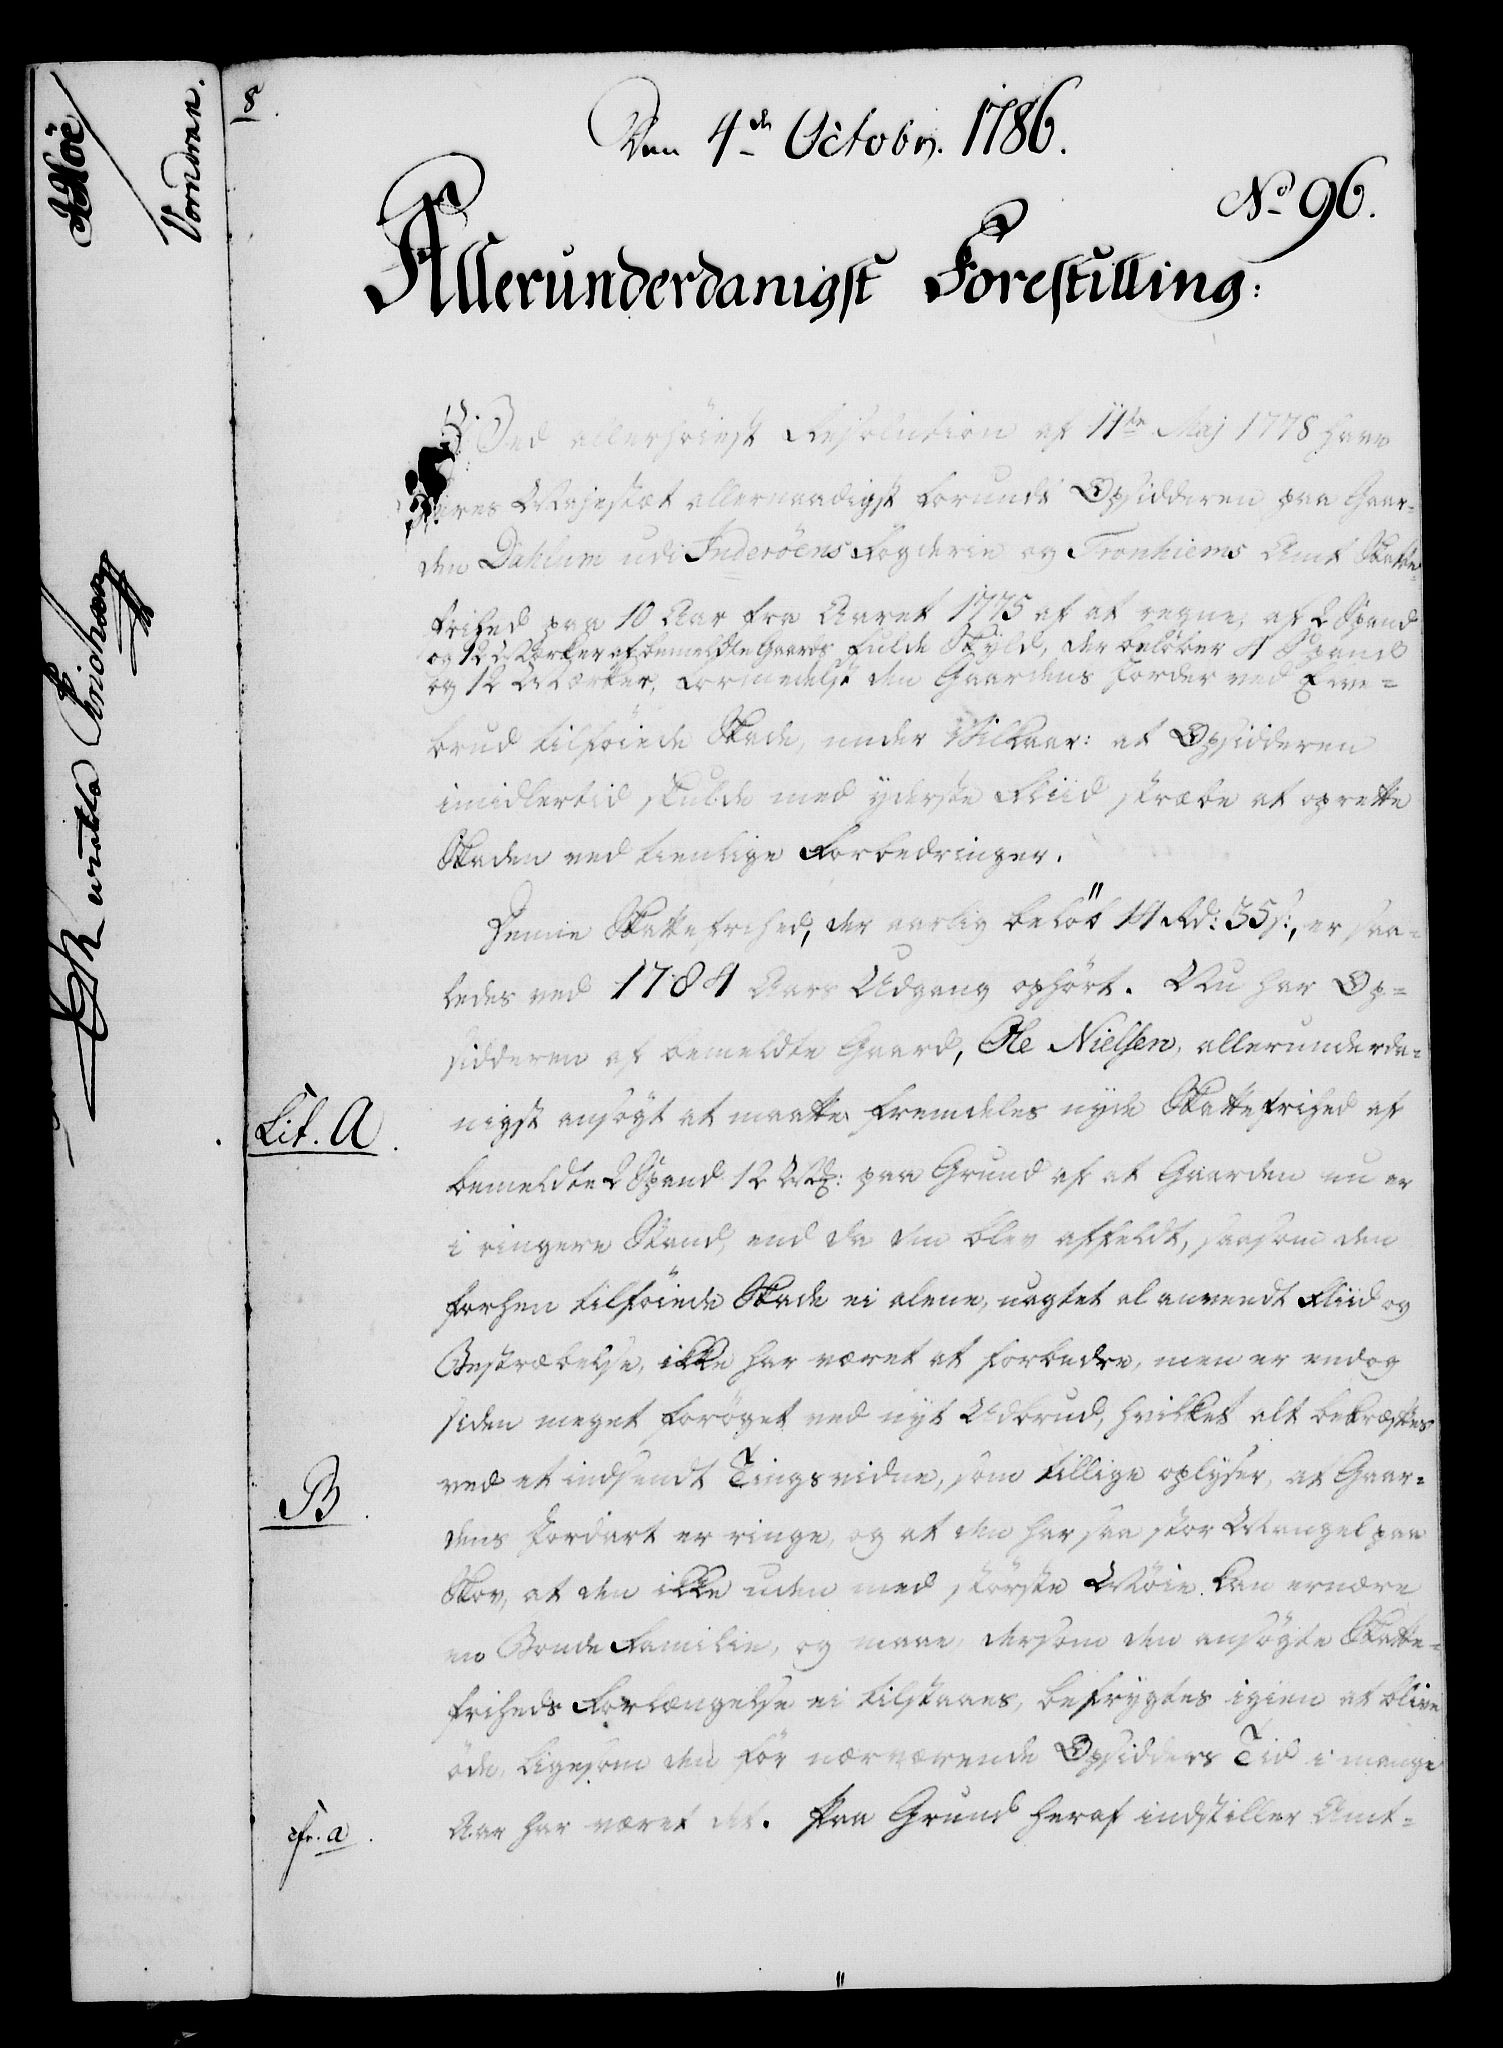 Den 4de Octobr. 1786.
No 96.
Allerunderdanigst Forestilling:
Ved allerhöieste Resolution af 11te Maj 1778 have
Deres Majestæt allernaadigst forundt Opsidderen paa Gaar-
den Dahlum udi Inderöens Fogderie og Tronhiems Amt Skatte-
frihed paa 10 Aar fra Aaret 1775 af at regne, af 2 Spand
og 12 Mærker af bemeldte Gaards fulde Skyld, der belöber 4 Spand
og 12 Mærker, formedelst den Gaardens Jorder ved Elve-
brud tilföiede Skade, under Vilkaar: at Opsidderen
imidlertid skulde med yderste Fliid stræbe at oprette
Skaden ved tienlige Forbedringer.
Denne Skattefrihed, der aarlig belöb 14 Rd: 35 s:, er saa-
ledes ved 1784 Aars Udgang ophört. Nu har Op-
sidderen af bemeldte Gaard, Ole Nielsen, allerunderda-
Lit. A.
nigst ansögt at maatte fremdeles nyde Skattefrihed af
bemeldte 2 Spand 12 Mk: paa Grund af at Gaarden nu er
i ringere Stand, end da den blev affeldt, saasom den
forhen tilföiede Skade ei alene, uagtet al anvendt Fliid og
Bestræbelse, ikke har været at forbedre, men er endog
siden meget foröget ved nyt Udbrud, hvilket alt bekræftes
B.
ved et indsendt Tingsvidne, som tillige oplyser, at Gaar-
dens Jordart er ringe, og at den har saa stor Mangel paa
Skov, at den ikke uden med störste Möie kan ernære
en Bonde Familie, og maae, dersom den ansögte Skatte-
friheds Forlængelse ei tilstaaes, befrygtes igien at blive
öde, ligesom den för nærværende Opsidders Tid i mange
cfr. a.
Aar har været det. Paa Grund heraf indstiller Amt-
Vorndran.